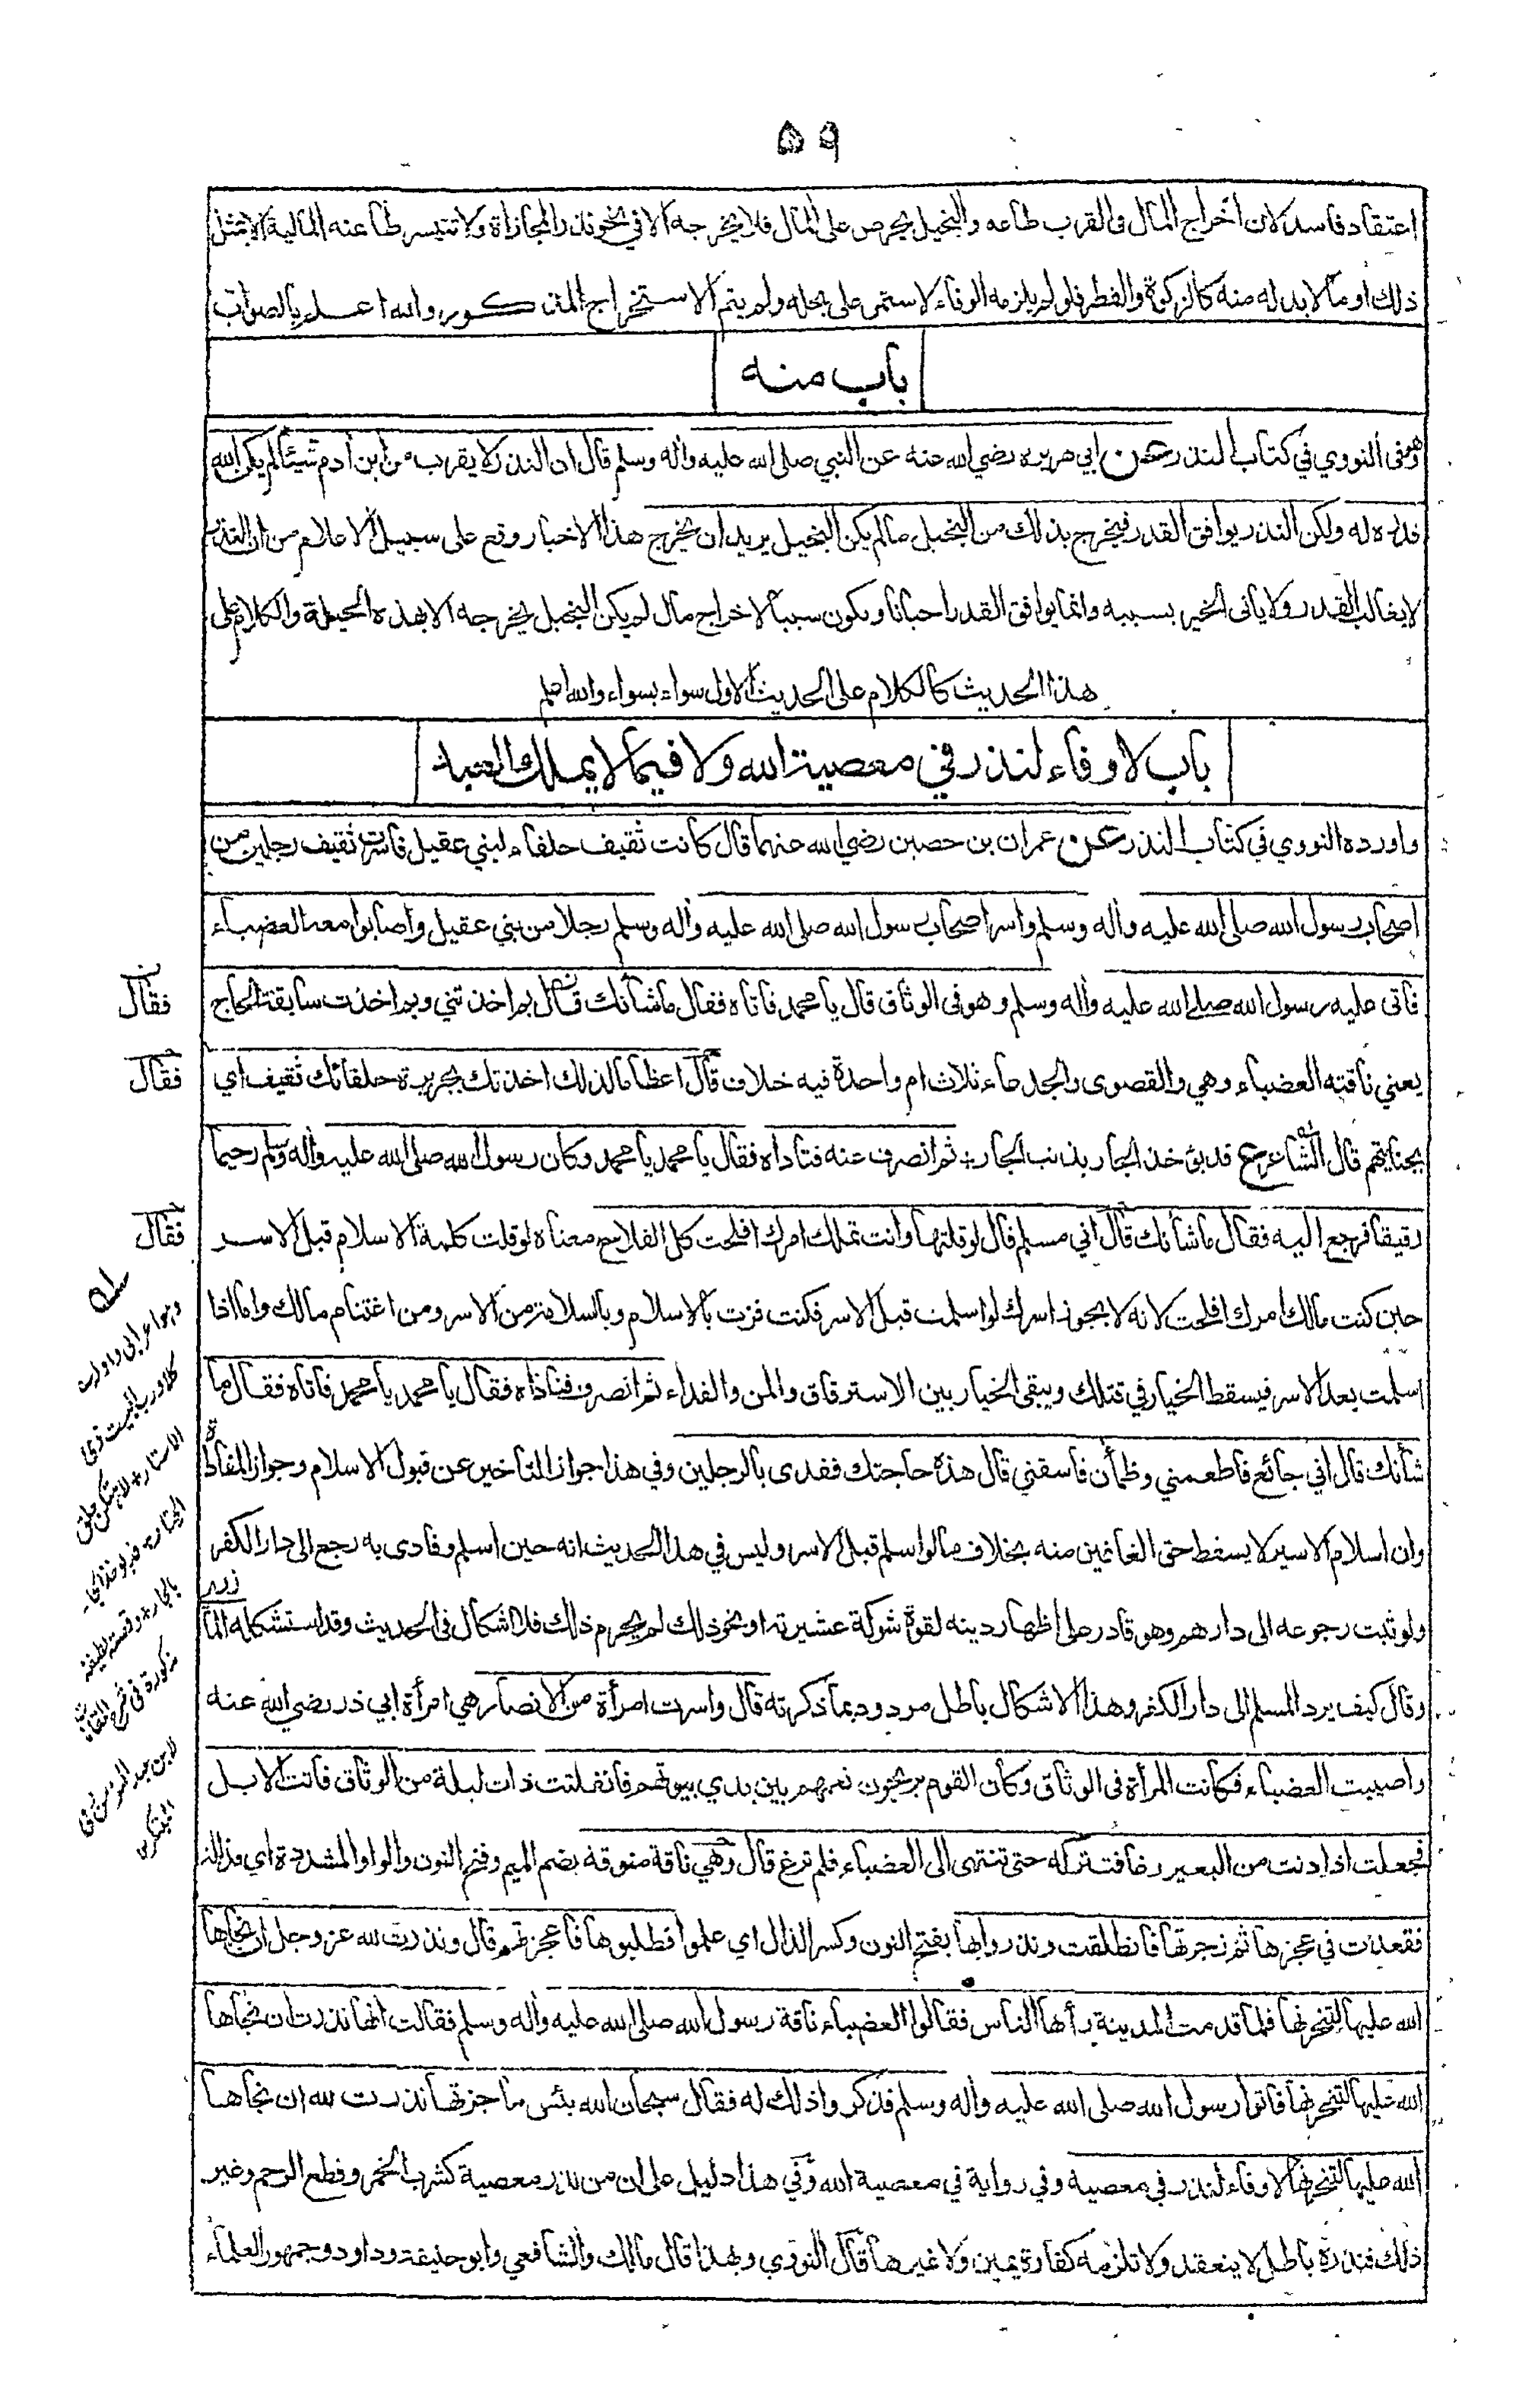 ٥٩
اعتقاد فاسد لان اخراج المال فى القرب طاعه والبخيل يحرص على المال فلا يخرجه الا في نحو نذر المجازاة ولا تتيسر طاعته المالية الا بمثل
ذلك او مالا بد له منه كالزكوة والفطر فلو لم يلزمه الوفاء لاستمر على بخله ولم يتم الاستخراج المذكور والله اعلم بالصواب
باب منه
وهو فى النووي في كتاب النذر عن ابي هريره رضي الله عنه عن النبي صلى الله عليه واله وسلم قال ان النذر لا يقرب من ابن أدم شيئا لم يكن الله
قدره له ولكن النذر يوافق القدر فيخرج بذلك من البخيل مالم يكن البخيل يريد ان يخرج هذا الاخبار وقع على سبيل الاعلام من ان النذر
لا يغالب القدر ولا يأتى الخير بسببه وانما يوافق القدر احيانا ويكون سببا لاخراج مال لم يكن البخيل يخرجه الا بهذه الحيلة والكلام على
هذا الحديث كالكلام على الحديث الاول سواء بسواء والله اعلم
باب لا وفاء لنذر في معصية الله ولا فيما لا يملك العبد
واورده النووي في كتاب النذر عن عمران بن حصين رضي الله عنهما قال كانت ثقيف حلفاء لبني عقيل فاسرت ثقيف رجلين من
اصحاب رسول الله صلى الله عليه واله وسلم واسر اصحاب رسول الله صلى الله عليه واله وسلم رجلا من بني عقيل واصابوا معه العضباء
فاتى عليه رسول الله صلى الله عليه واله وسلم وهو فى الوثاق قال يا محمد فاتاه فقال ماشأنك قال بم اخذتني وبم اخذت سابقة الحاج
فقال
يعني ناقته العضباء وهي والقصوى والجدعاء ثلاث ام واحدة فيه خلاف قال اعظاما لذلك اخذتك بجريرة حلفائك ثقيف اي
فقال
بجنايتهم قال الشاعر ع قد يؤخذ الجار بذنب الجار ثم انصرف عنه فناداه فقال يا محمد يا محمد وكان رسول الله صلى الله عليه واله وسلم رحيما
رقيقا فرجع اليه فقال ماشأنك قال اني مسلم قال لو قلتها وانت تملك امرك افلحت كل الفلاح معناه لو قلت كلمة الاسلام قبل الاسر
فقال
حين كنت مالك امرك افلحت لانه لا يجوز اسرك لو اسلمت قبل الاسر فكنت فزت بالاسلام وبالسلامة من الاسر ومن اغتنام مالك واما اذا
اسلمت بعد الاسر فيسقط الخيار في قتلك ويبقى الخيار بين الاسترقاق والمن والفداء ثم انصرف فناداه فقال يا محمد يا محمد فاتاه فقال ما
شأنك قال اني جائع فاطعمني وظمأن فاسقني قال هذه حاجتك ففدى بالرجلين وفي هذا جواز التأخير عن قبول الاسلام وجواز المفاداة
وان اسلام الاسير لا يسقط حق الغانمين منه بخلاف مالو اسلم قبل الاسر وليس في هذا الحديث انه حين اسلم وفادى به رجع الى دار الكفر
ولو ثبت رجوعه الى دارهم وهو قادر على اظهار دينه لقوة شوكة عشيرته او نحو ذلك لم يحرم ذلك فلا اشكال فى الحديث وقد استشكله المازري
وقال كيف يرد المسلم الى دار الكفر وهذا الاشكال باطل مردود بما ذكرته قال واسرت امرأة من الانصار هي امرأة ابي ذر رضي الله عنه
واصيبت العضباء فكانت المرأة فى الوثاق وكان القوم يريحون نعمهم بين يدي بيوتهم فانفلتت ذات ليلة من الوثاق فاتت الابل
فجعلت اذا دنت من البعير رغا فتتركه حتى تنتهى الى العضباء فلم ترغ قال وهي ناقة منوقة بضم الميم وفتح النون والواو المشددة اي مذللة
فقعدت في عجزها ثم زجرتها فانطلقت ونذروا بها بفتح النون وكسر الذال اي علموا فطلبوها فاعجزتهم قال ونذرت لله عز وجل ان نجاها
الله عليها لتنحرنها فلما قدمت المدينة رأها الناس فقالوا العضباء ناقة رسول الله صلى الله عليه واله وسلم فقالت انها نذرت ان نجاها
الله عليها لتنحرنها فاتوا رسول الله صلى الله عليه واله وسلم فذكروا ذلك له فقال سبحان الله بئس ما جزتها نذرت لله ان نجاها
الله عليها لتنحرنها لا وفاء لنذر في معصية وفي رواية في معصية الله وفي هذا دليل على ان من نذر معصية كشرب الخمر وقطع الرحم وغير
ذلك فنذره باطل لا ينعقد ولا تلزمه كفارة يمين ولا غيرها قال النووي وبهذا قال مالك والشافعي وابو حنيفة وداود وجمهور العلماء
كلا ورب البيت ذى
الاستار
بالجار وقصة لطيفة
مذكورة فى شرح المقامات